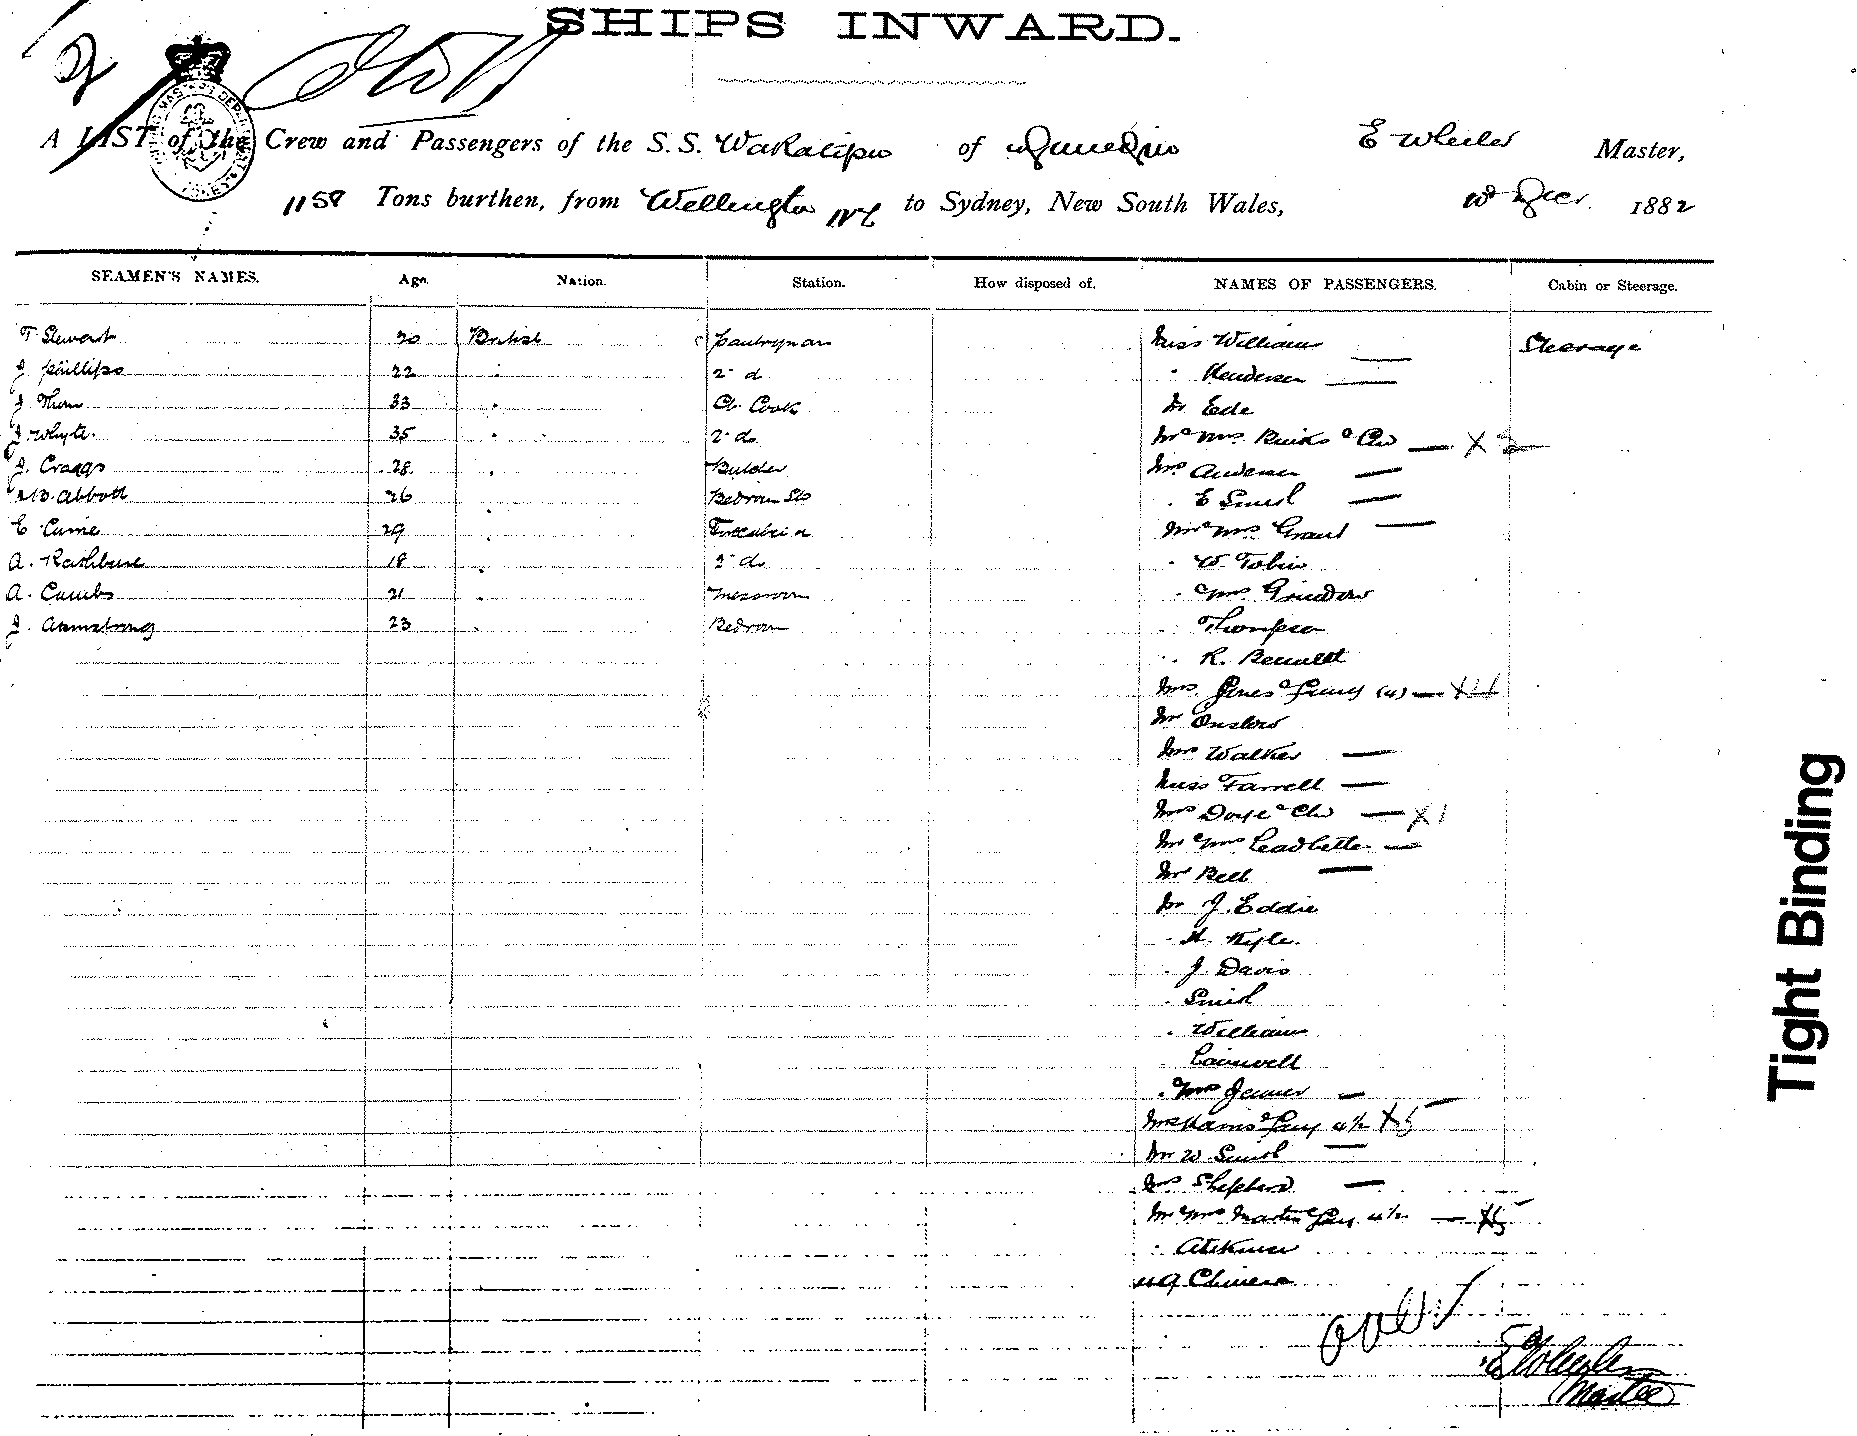 SHIPS INWARD.
A LIST of the Crew and Passengers of the S.S. Wakatipu of Dunedin E Wheeler Master,
1158 Tons burthen, from Wellington NZ to Sydney, New South Wales, Decr. 1882
SEAMEN'S NAMES. Age. Nation. Station. How disposed of. NAMES OF PASSENGERS. Cabin or Steerage.
T Stewart 30 British pantryman Miss Williams Steerage
J Phillips 22 " 2d " Henderson
J Thom 33 " Ch. Cook Mr Ede
J. Whyte 35 " 2 do Mr & Mrs & Ch X 2
J. Craggs 28 " Butcher Mrs Anderson
Abbott 26 Bedroom Std " E Smith
E Currie 29 " Forecabin Mr & Mrs Grant
A. Rathbure 18 " 2 do " W. Tobin
A. Cumbs 21 " Messroom " & Mrs
J. Armstrong 23 " Bedroom " Thompson
" R. Bennett
Mrs Jones & Famy (4) X 4
Mr Onslow
Mrs Walker
Miss Farrell
Mrs Doyle & Ch X 1
Mr & Mrs Leadbetter
Mr Bell
Mr J. Eddie
" H. Kyle
" J Davis
" Smith
" Williams
Cornwell
" & Mrs Jenner
Mrs Harris & Famy 4/2 X 5
Mr W Smith
Mrs Shepherd
Mr & Mrs Martin & Famy 4/2 X 5
" Atkinson
49 Chinese
E Wheeler
Master
Tight Binding